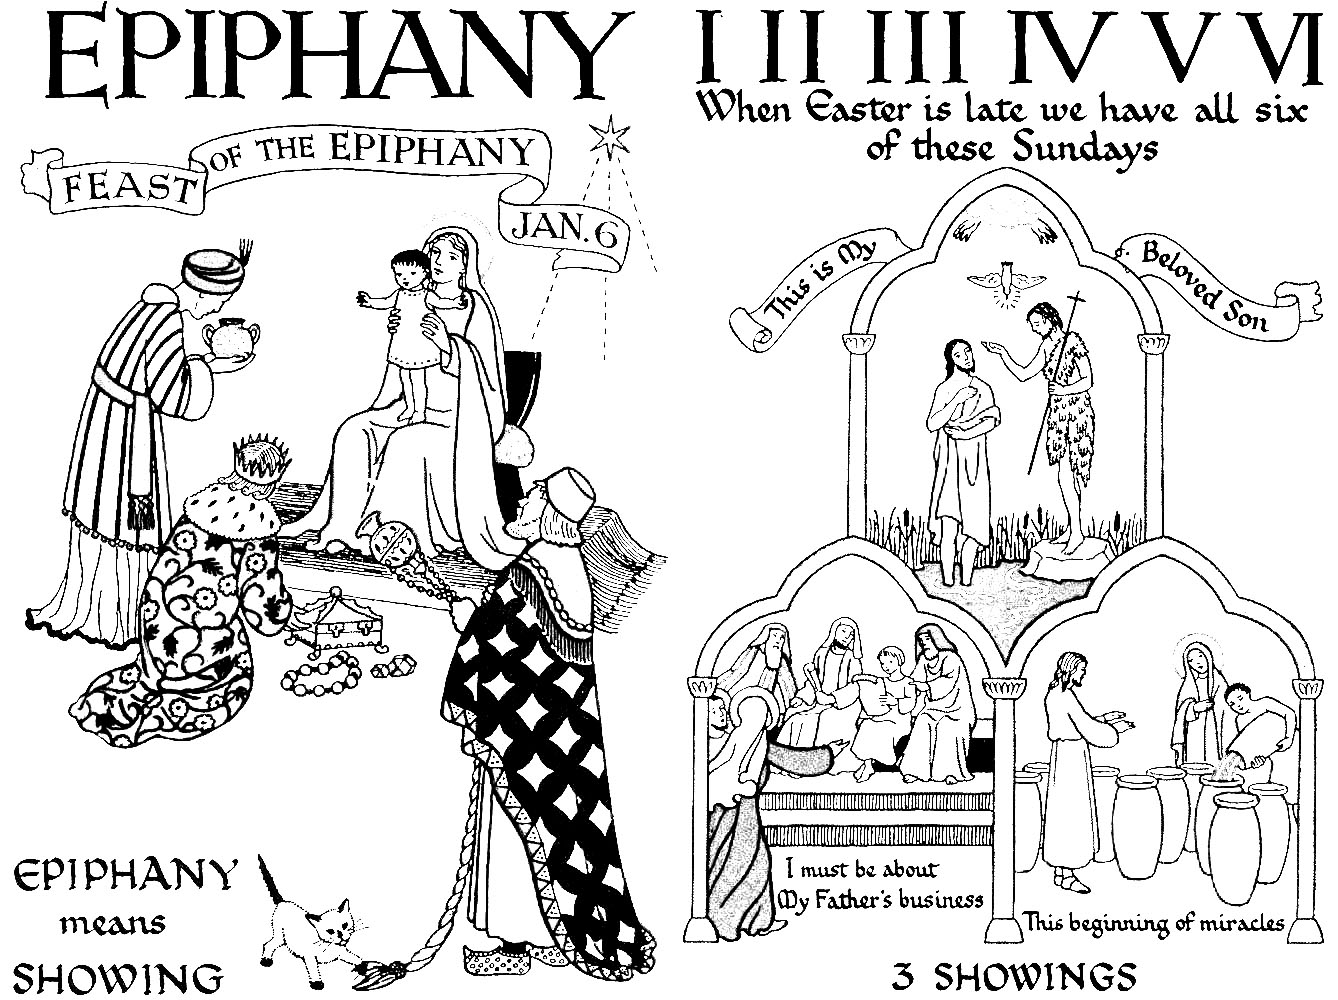 EPIPHANY
FEAST OF THE EPIPHANY
JAN. 6
EPIPHANY
means
SHOWING
I II III IV V VI
When Easter is late we have all six
of these Sundays
This is My Beloved Son
I must be about
My Father's business
This beginning of miracles
3 SHOWINGS